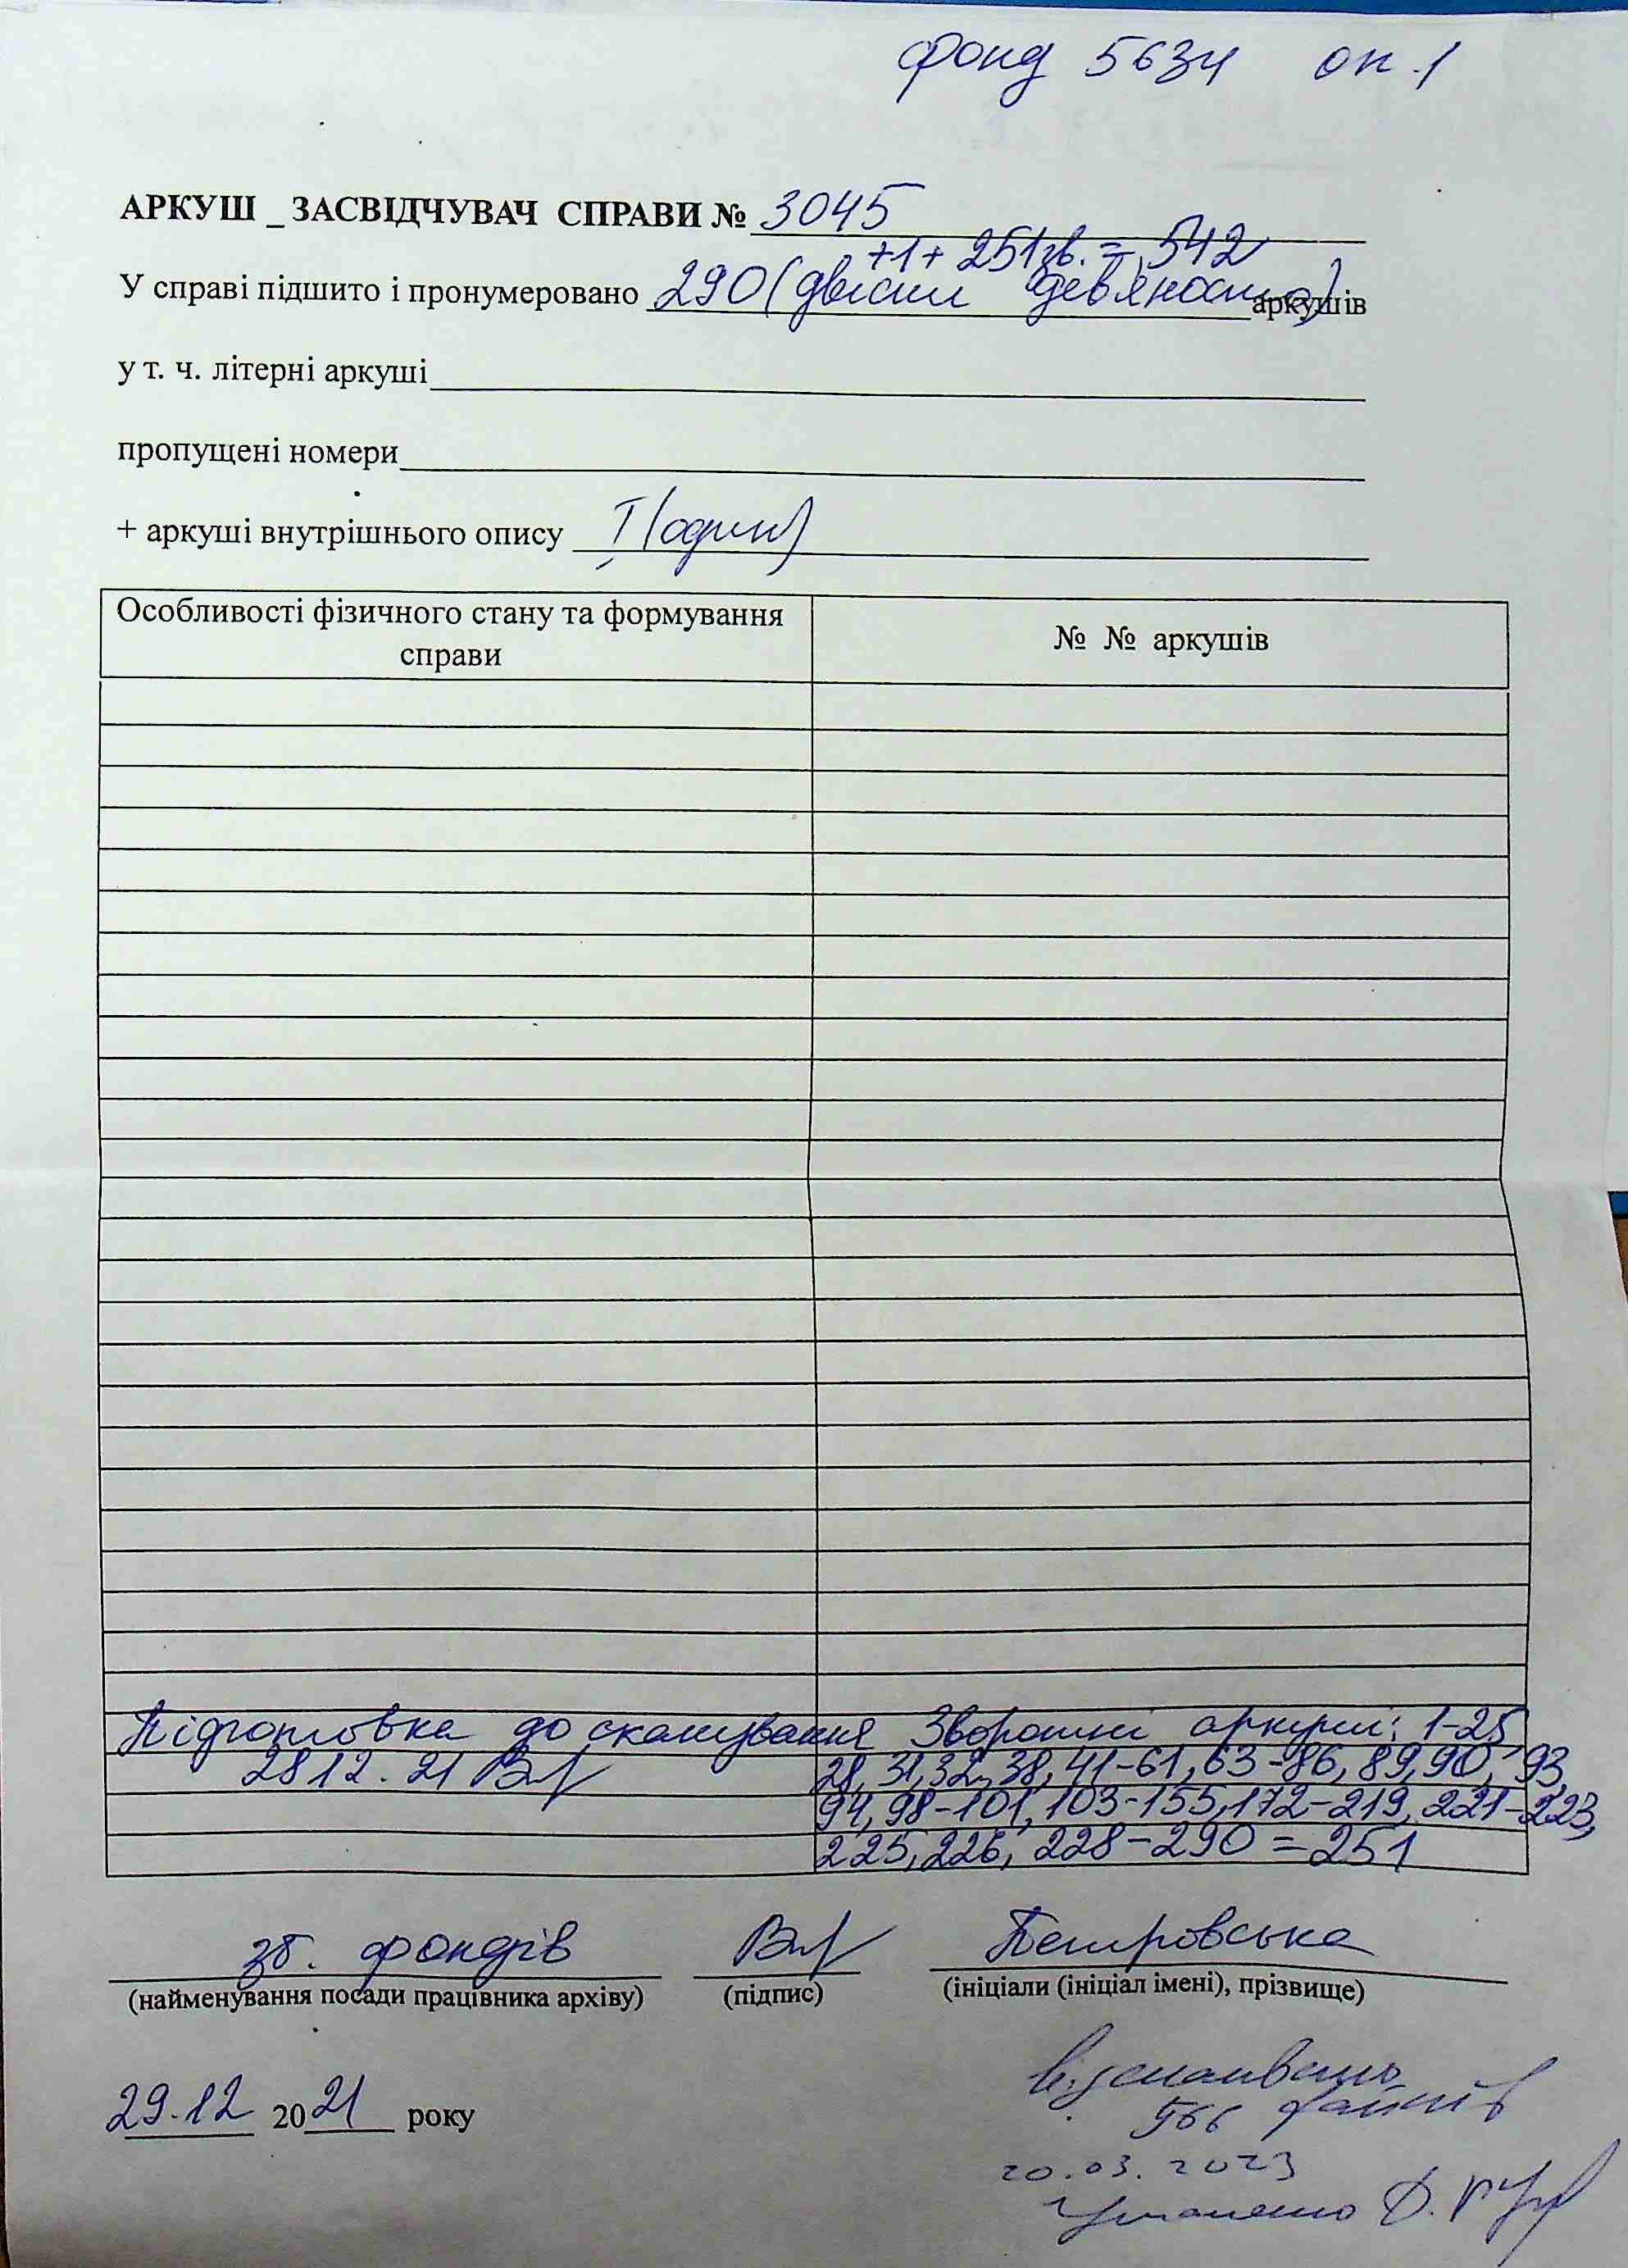 фонд 5634 оп. 1
АРКУШ _ ЗАСВІДЧУВАЧ СПРАВИ № 3045
+1+ 251зв. = 542
У справі підшито і пронумеровано 290 (двісті дев'яносто) аркушів
у т. ч. літерні аркуші
пропущені номери
+ аркуші внутрішнього опису 1 (один)
Особливості фізичного стану та формування
справи
№ № аркушів
Підготовка до сканування Зворотні аркуші: 1-25,
28.12.21
28, 31, 32, 38, 41-61, 63-86, 89, 90, 93,
94, 98-101, 103-155, 172-219, 221-223,
225, 226, 228-290 = 251
зб. фондів Петровська
(найменування посади працівника архіву) (підпис) (ініціали (ініціал імені), прізвище)
29.12 2021 року
Відскановано
566 файлів
20.03.2023
Д.